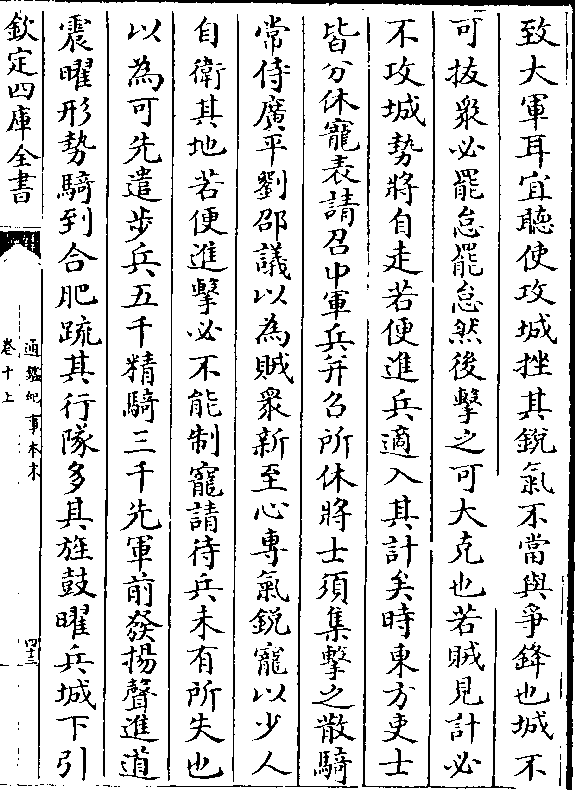 致大軍耳宜聽使攻城挫其銳氣不當與爭鋒也城不
可拔衆必罷怠罷怠然後擊之可大克也若賊見計必
不攻城勢將自走若便進兵適入其計矣時東方吏士
皆分休寵表請召中軍兵并召所休將士須集擊之散騎
常侍廣平劉邵議以為賊衆新至心專氣銳寵以少人
自衛其地若便進擊必不能制寵請待兵未有所失也
以為可先遣步兵五千精騎三千先軍前發揚聲進道
震曜形勢騎到合肥疏其行隊多其旌鼓曜兵城下引
欽定四庫全書
通鑑紀事本末
卷十上
四十三